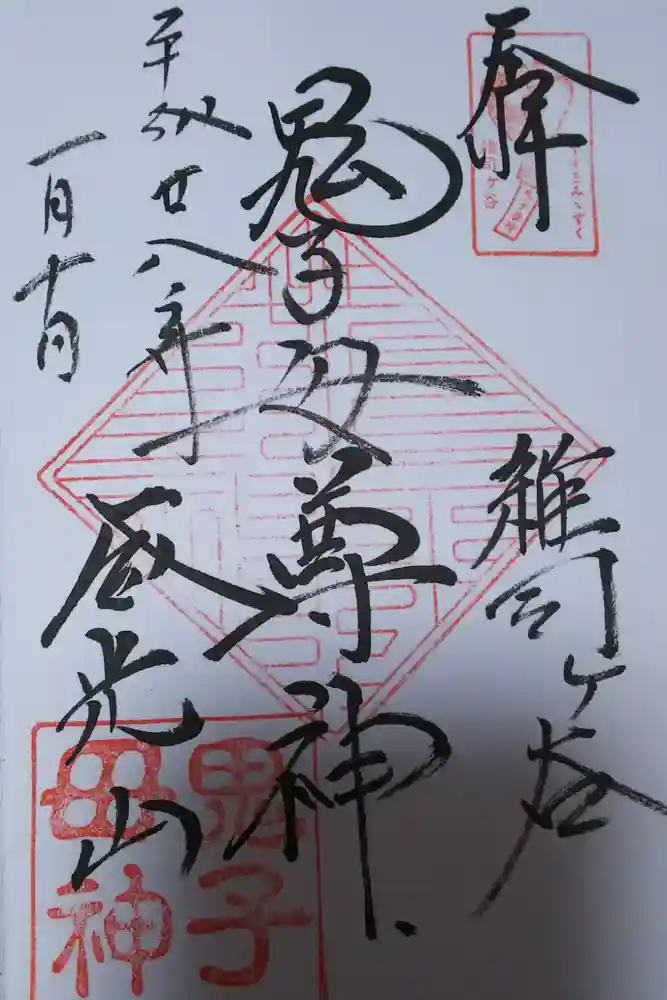 奉拝
雑司ヶ谷
鬼子母尊神
平成廿八年
一月十日
威光山
鬼子
母神
雑司ヶ谷